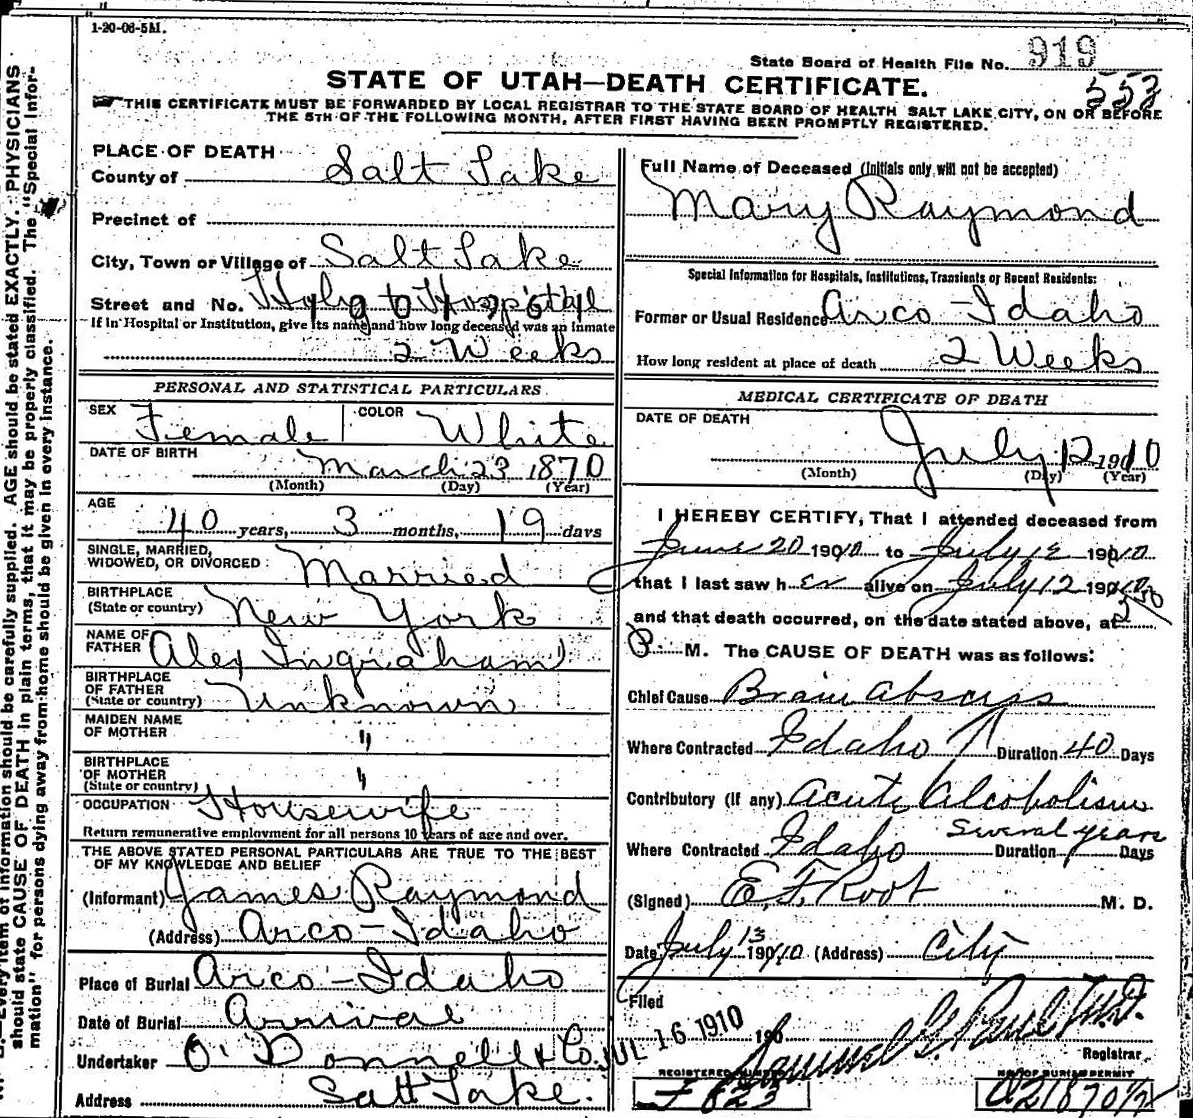 1-20-06-5M.
State Board of Health File No. 919
553
STATE OF UTAH—DEATH CERTIFICATE.
THIS CERTIFICATE MUST BE FORWARDED BY LOCAL REGISTRAR TO THE STATE BOARD OF HEALTH SALT LAKE CITY, ON OR BEFORE
THE 5TH OF THE FOLLOWING MONTH, AFTER FIRST HAVING BEEN PROMPTLY REGISTERED.
PLACE OF DEATH
County of Salt Lake
Precinct of
City, Town or Village of Salt Lake
Street and No. Holy Hospital
If in Hospital or Institution, give its name and how long deceased was an inmate
2 Weeks
PERSONAL AND STATISTICAL PARTICULARS
SEX Female COLOR White
DATE OF BIRTH March 23 1870
(Month) (Day) (Year)
AGE 40 years, 3 months, 19 days
SINGLE, MARRIED,
WIDOWED, OR DIVORCED: Married
BIRTHPLACE
(State or country) New York
NAME OF
FATHER Alex Ingraham
BIRTHPLACE
OF FATHER
(State or country) Unknown
MAIDEN NAME
OF MOTHER "
BIRTHPLACE
OF MOTHER
(State or country) "
OCCUPATION Housewife
Return remunerative employment for all persons 10 years of age and over.
THE ABOVE STATED PERSONAL PARTICULARS ARE TRUE TO THE BEST
OF MY KNOWLEDGE AND BELIEF
(Informant) James Raymond
(Address) Arco-Idaho
Place of Burial Arco-Idaho
Date of Burial Arrival
Undertaker O'Donnell & Co.
Address Salt Lake.
Full Name of Deceased (Initials only will not be accepted)
Mary Raymond
Special Information for Hospitals, Institutions, Transients or Recent Residents:
Former or Usual Residence Arco-Idaho
How long resident at place of death 2 Weeks
MEDICAL CERTIFICATE OF DEATH
DATE OF DEATH
July 12 1910
(Month) (Day) (Year)
I HEREBY CERTIFY, That I attended deceased from
June 20 1910 to July 12 1910
that I last saw her alive on July 12 1910
and that death occurred, on the date stated above, at
P. M. The CAUSE OF DEATH was as follows:
Chief Cause Brain Abscess
Where Contracted Idaho Duration 40 Days
Contributory (If any) Acute Alcoholism
Several years
Where Contracted Idaho Duration Days
(Signed) E. F. Root M. D.
Date July 13 1910 (Address) City
Filed
JUL 16 1910 190
Samuel G. Paul M.D.
Registrar
REGISTERED NUMBER
F 823
NO. OF BURIAL PERMIT
A21870 1/2
Every item of information should be carefully supplied. AGE should be stated EXACTLY. PHYSICIANS
should state CAUSE OF DEATH in plain terms, that it may be properly classified. The "Special Infor-
mation" for persons dying away from home should be given in every instance.